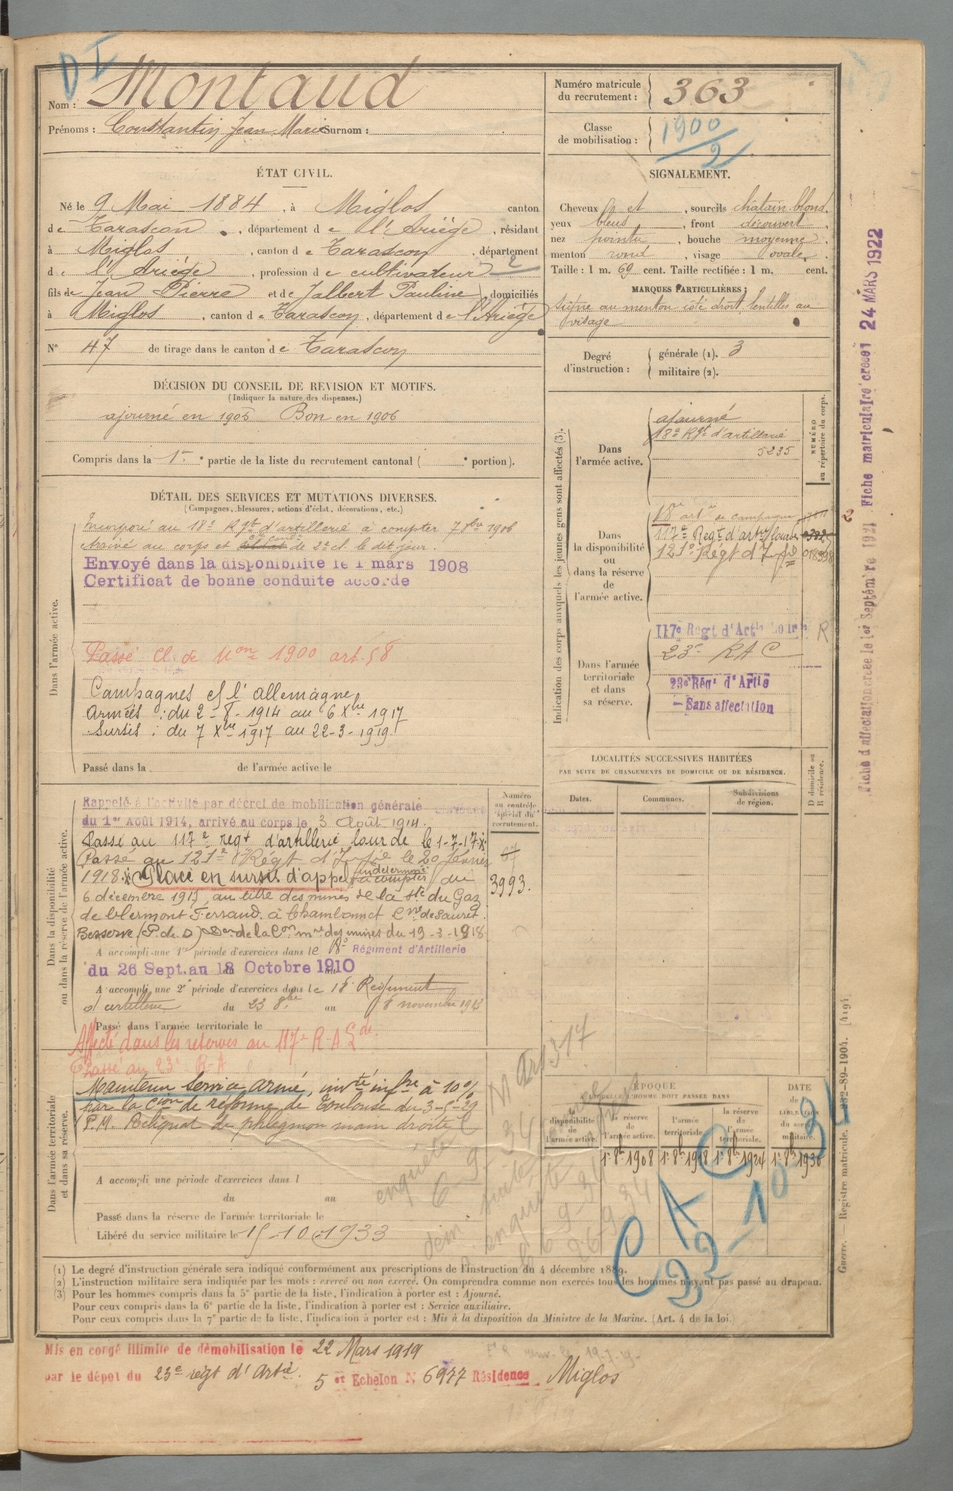 D I
Nom : Montaud
Prénoms : Constantin Jean Marie Surnom :
Numéro matricule du recrutement : 363
Classe de mobilisation : 1900/2
ÉTAT CIVIL.
Né le 9 Mai 1884, à Miglos canton
de Tarascon, département de l'Ariège, résidant
à Miglos, canton de Tarascon, département
de l'Ariège, profession de cultivateur
fils de Jean Pierre et de Jalbert Pauline domiciliés
à Miglos, canton de Tarascon, département de l'Ariège
N° 47 de tirage dans le canton de Tarascon
SIGNALEMENT.
Cheveux et, sourcils chatain blond
yeux bleus, front découvert
nez pointu, bouche moyenne
menton rond, visage ovale
Taille : 1 m. 69 cent. Taille rectifiée : 1 m. cent.
MARQUES PARTICULIÈRES :
signe au menton côté droit, lentilles au
visage
Degré d'instruction : générale (1). 3
militaire (2).
DÉCISION DU CONSEIL DE REVISION ET MOTIFS.
(Indiquer la nature des dispenses.)
ajourné en 1905 Bon en 1906
Compris dans la 1re partie de la liste du recrutement cantonal ( e portion).
DÉTAIL DES SERVICES ET MUTATIONS DIVERSES.
(Campagnes, blessures, actions d'éclat, décorations, etc.)
Dans l'armée active.
Incorporé au 18e Rgt d'artillerie à compter 7 8bre 1906
arrivé au corps et de 2e cl. le dit jour.
Envoyé dans la disponibilité le 1 mars 1908
Certificat de bonne conduite accordé
Passé cl. de Mon 1900 art. 58
Campagnes c/ l'allemagne
Armées : du 2-8-1914 au 6 Xbre 1917
Sursis : du 7 Xbre 1917 au 22-3-1919
Passé dans la de l'armée active le
Indication des corps auxquels les jeunes gens sont affectés (3).
NUMÉRO au répertoire du corps.
Dans l'armée active.
ajourné
18e Rgt d'artillerie
5235
Dans la disponibilité ou dans la réserve de l'armée active.
18e art ie de campagne
117e Regt d'art lourde
121e Régt d'
Dans l'armée territoriale et dans sa réserve.
117e Régt d'Artie Lourde
23e RAC
23e Rég' d'Artie
— Sans affectation
LOCALITÉS SUCCESSIVES HABITÉES
PAR SUITE DE CHANGEMENTS DE DOMICILE OU DE RÉSIDENCE.
Dates. Communes. Subdivisions de région. D domicile ou R résidence.
Dans la disponibilité ou dans la réserve de l'armée active.
Numéro au contrôle spécial du recrutement.
Rappelé à l'activité par décret de mobilisation générale
du 1er Août 1914, arrivé au corps le 3 Août 1914.
Passé au 117e regt d'artillerie lourde le 1-7-17
Passé au 121e Régt d' le 20 février
1918. Placé en sursis d'appel indéterminé à compter du
3993.
6 décembre 1917, au titre des mines de la Sté du Gaz
de Clermont Ferrand. à Chambonnet Cne de Sauret
Besserve (P. de D) de la Con des mines du 19-3-1918
A accompli une 1re période d'exercices dans le 18e Régiment d'Artillerie
du 26 Sept. au 18 Octobre 1910
A accompli une 2e période d'exercices dans le 18 Regiment
d'artillerie du 23 8bre au 8 novembre
Passé dans l'armée territoriale le
Affecté dans les réserves au 117e R.A.L
Passé au 23e R.A
Dans l'armée territoriale et dans sa réserve.
Maintenu Service armé, invté infre à 10%
par la cion de réforme de Toulouse du 3-5-29
P.M. Reliquat de phlegmon main droite
A accompli une période d'exercices dans l
du au
Passé dans la réserve de l'armée territoriale le
Libéré du service militaire le 15-10-1933
Art 317
ÉPOQUE
À LAQUELLE L'HOMME DOIT PASSER DANS
la disponibilité de l'armée active. la réserve de l'armée active. l'armée territoriale. la réserve de l'armée territoriale. DATE de LIBÉRATION du service militaire.
1er 8bre 1908 1er 8bre 1918 1er 8bre 1924 1er 8bre 1930
(1) Le degré d'instruction générale sera indiqué conformément aux prescriptions de l'instruction du 4 décembre 1889.
(2) L'instruction militaire sera indiquée par les mots : exercé ou non exercé. On comprendra comme non exercés tous les hommes n'ayant pas passé au drapeau.
(3) Pour les hommes compris dans la 5e partie de la liste, l'indication à porter est : Ajourné.
Pour ceux compris dans la 6e partie de la liste, l'indication à porter est : Service auxiliaire.
Pour ceux compris dans la 7e partie de la liste, l'indication à porter est : Mis à la disposition du Ministre de la Marine. (Art. 4 de la loi.)
Mis en congé illimité de démobilisation le 22 Mars 1919
par le dépôt du 23e régt d'Artie. 5 e Echelon N° 6977 Résidence Miglos
Fiche d'affectation créée le 1er Septembre 1921 Fiche matriculaire créée 24 MARS 1922
Guerre. Registre matricule.